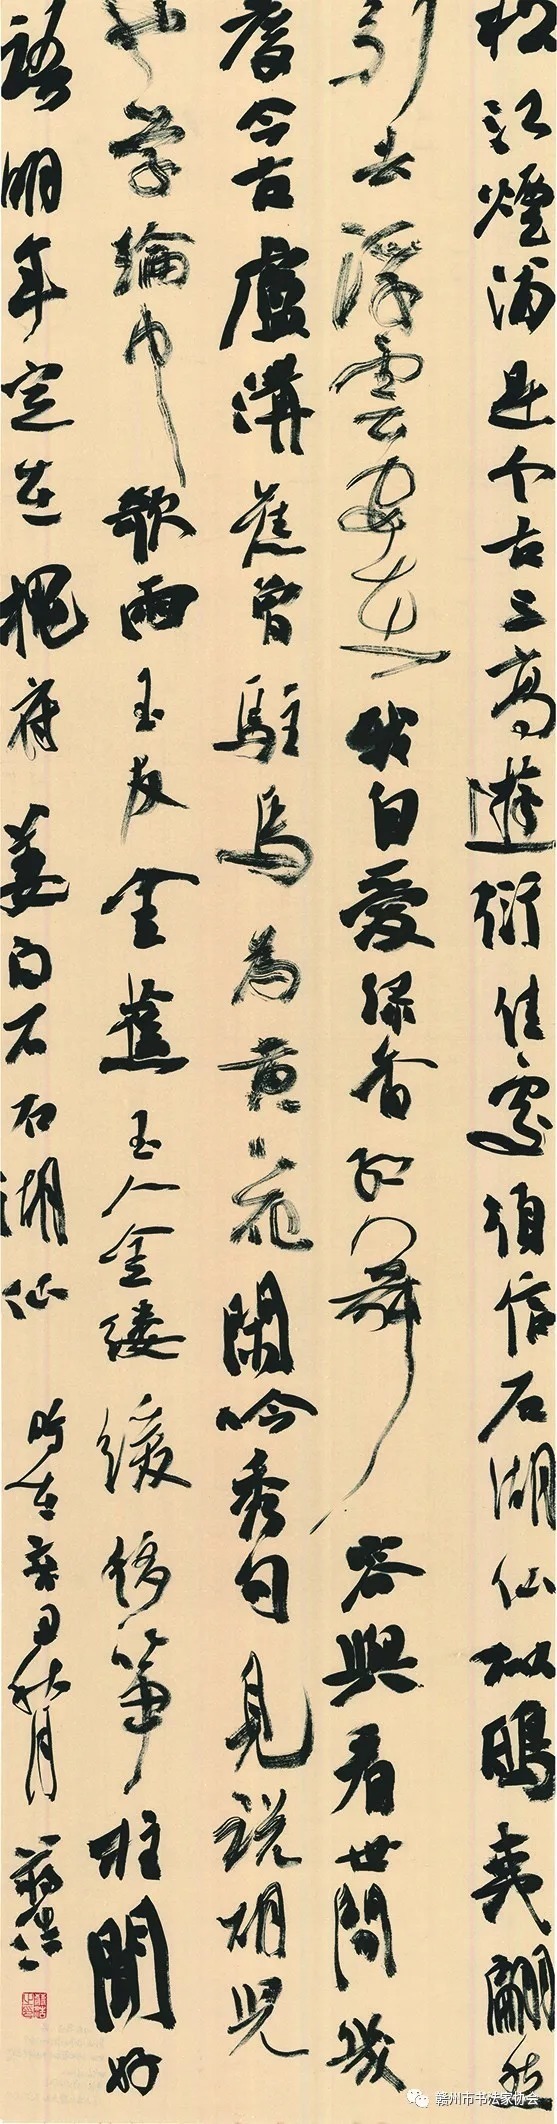 松江煙浦是个古三高遊衍佳處須信石湖仙似鴟夷翩然
引去浮雲安在我自愛綠香紅舞容與看世間幾
度今古盧溝舊曾駐馬為黄花閑吟秀句見說胡兒
也學綸巾欹雨玉友金蕉玉人金縷緩移箏柱聞好
語明年定在槐府姜白石石湖仙時在辛丑秋月
赣州市书法家协会